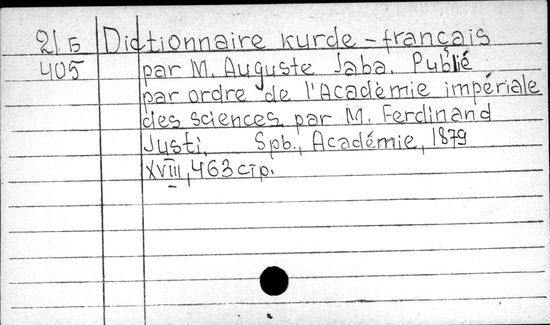 21 Б Dictionnaire kurde-français
405 par M. Auguste Jaba. Publié
par ordre de l'Académie impériale
des sciences par M. Ferdinand
Justi. Spb., Académie, 1879
XVIII, 463 стр.